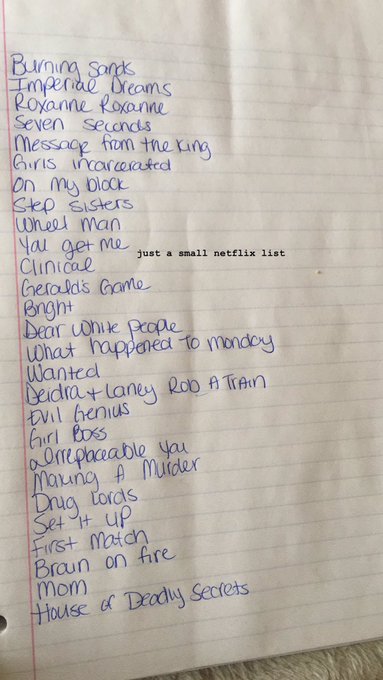 Burning Sands
Imperial Dreams
Roxanne Roxanne
Seven Seconds
Message from the King
Girls incarcerated
On my block
Step Sisters
Wheel man
You get me
just a small netflix list
Clinical
Gerald's Game
Bright
Dear White people
What happened To monday
Wanted
Deidra + Laney Rob A Train
Evil Genius
Girl Boss
Irreplaceable You
Making A Murder
Drug Lords
Set it up
First Match
Brain on fire
Mom
House of Deadly Secrets